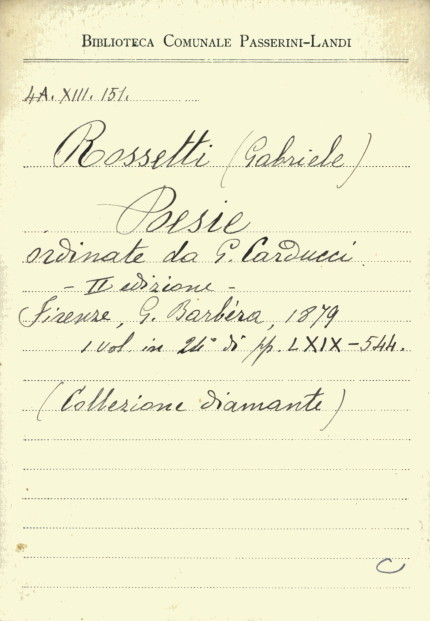 BIBLIOTECA COMUNALE PASSERINI-LANDI
4A. XIII. 151.
Rossetti (Gabriele)
Poesie
ordinate da G. Carducci
- II edizione -
Firenze, G. Barbèra, 1879
1 vol. in 24° di pp. LXIX-544.
(Collezione diamante)
C